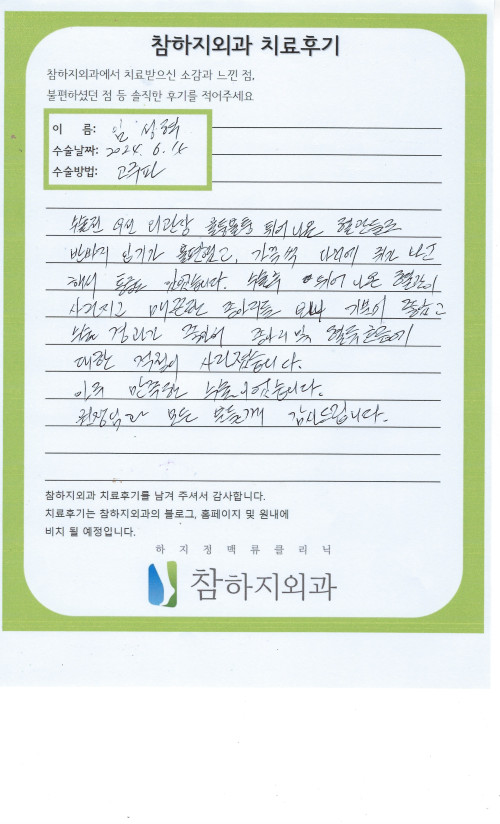 참하지외과 치료후기
참하지외과에서 치료받으신 소감과 느낀 점,
불편하셨던 점 등 솔직한 후기를 적어주세요
이 름: 임성혁
수술날짜: 2024. 6. 15
수술방법: 고주파
수술전 우선 외관상 울퉁불퉁 튀어나온 혈관들로
반바지 입기가 불편했고, 가끔씩 다리에 쥐가 나곤
해서 있었습니다. 수술후 튀어 나온 혈관이
사라지고 매끈한 종아리를 보니 기분이 좋고
수술 경과가 좋아서 종아리 및
대한 걱정이 사라졌습니다.
아주 만족한 수술이었습니다.
원장님과 모든 분들께 감사드립니다.
참하지외과 치료후기를 남겨 주셔서 감사합니다.
치료후기는 참하지외과의 블로그, 홈페이지 및 원내에
비치 될 예정입니다.
하지정맥류클리닉
참하지외과